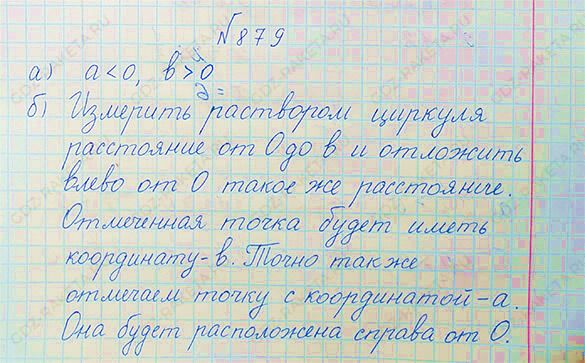 №879
а) a<0, b>0
б) Измерить раствором циркуля
расстояние от 0 до в и отложить
влево от 0 такое же расстояние.
Отмеченная точка будет иметь
координату -в. Точно также
отмечаем точку с координатой -а.
Она будет расположена справа от 0.
GDZ-RAKETA.RU